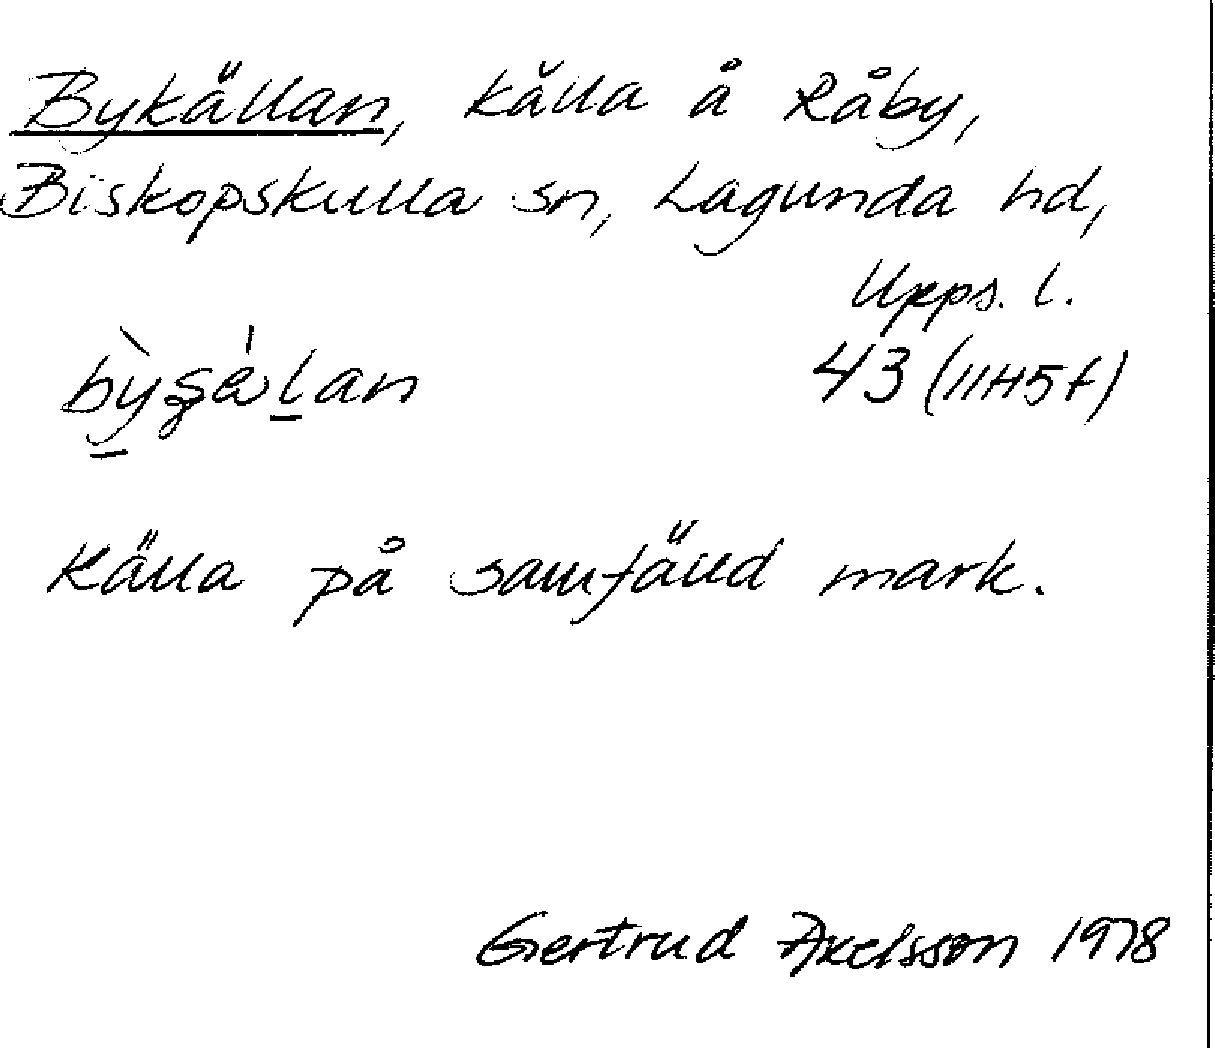 Bykällan, källa å Råby,
Biskopskulla sn, Lagunda hd,
Upps. l.
43 (11H5f)
Källa på samfälld mark.
Gertrud Axelsson 1978